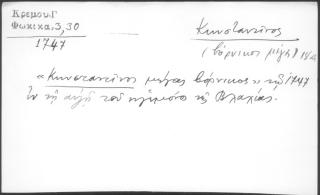 Κρεμου.Γ
Φωκικα,3,30
1747
Κωνσταντῖνος
(βόρνικος μέγας)
«Κωνσταντῖνος μέγας βόρνικος» τῷ 1747
ἐν τῇ αὐλῇ τοῦ ἡγεμόνος τῆς Βλαχίας.